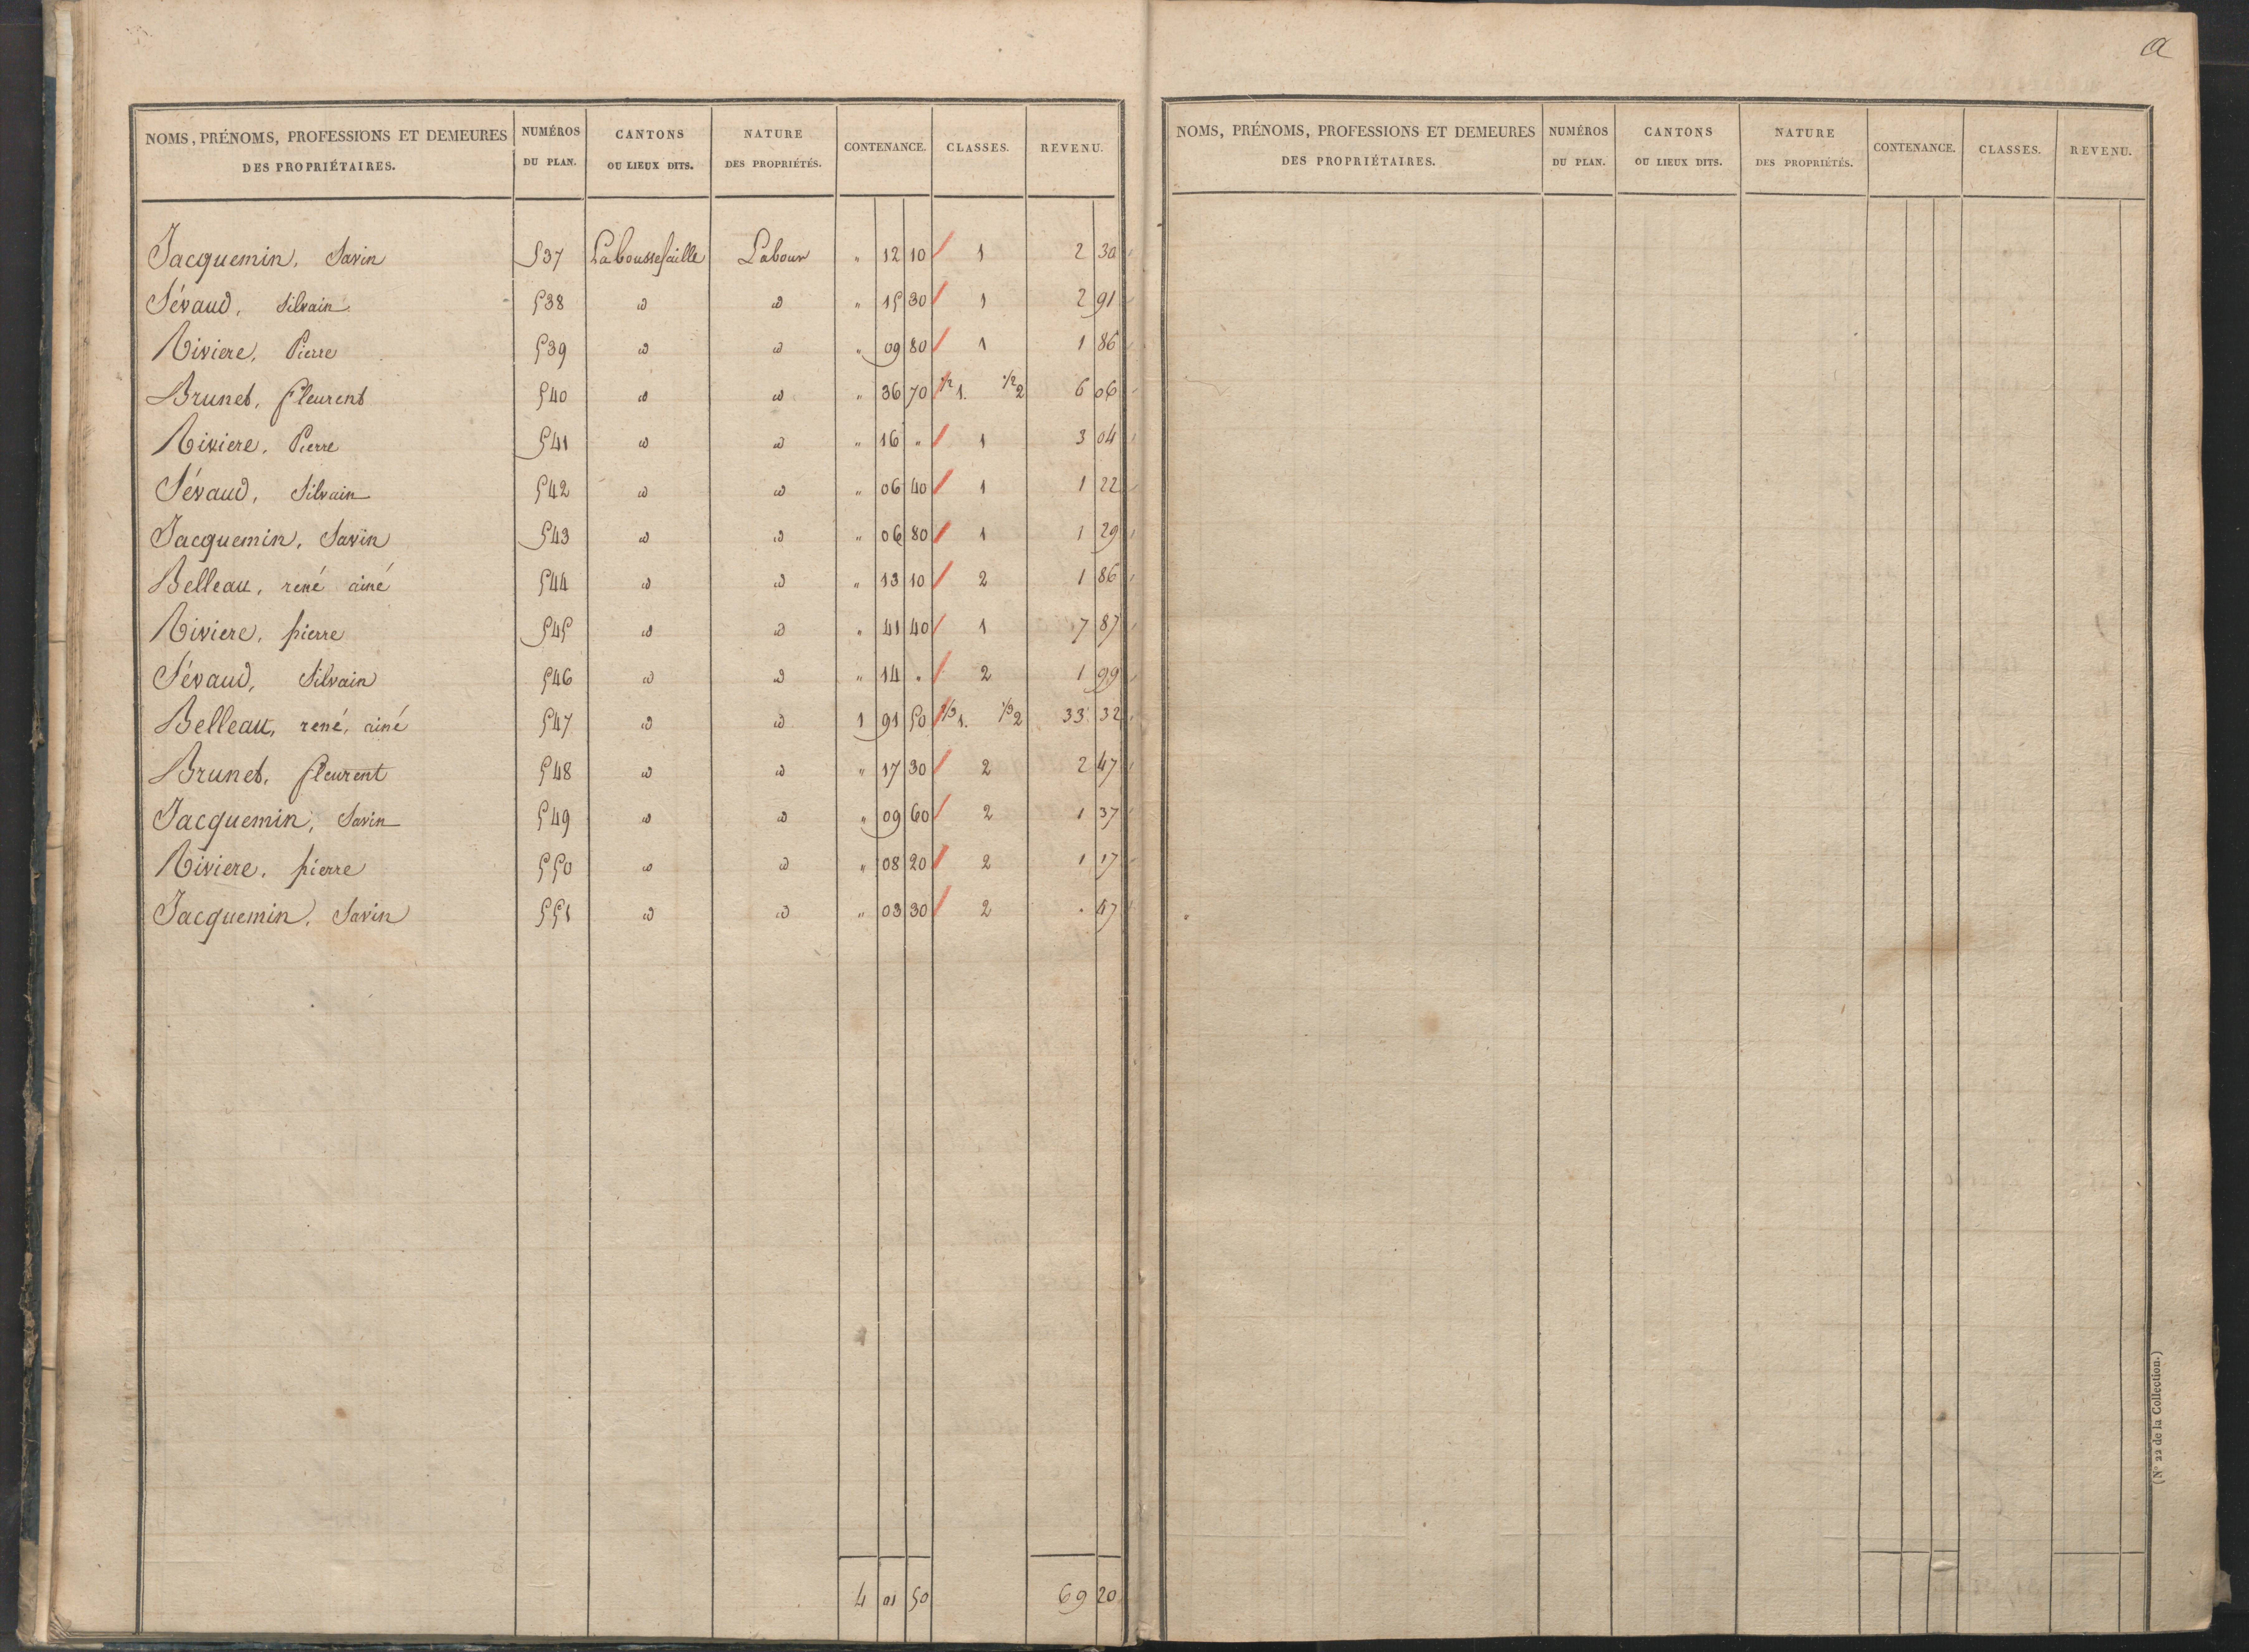 NOMS, PRÉNOMS, PROFESSIONS ET DEMEURES DES PROPRIÉTAIRES. NUMÉROS DU PLAN. CANTONS OU LIEUX DITS. NATURE DES PROPRIÉTÉS. CONTENANCE. CLASSES. REVENU.
Jacquemin, Savin 537 Laboussefaille Labour " 12 10 1 2 30
Sévaud, Silvain 538 id id " 15 30 1 2 91
Riviere, Pierre 539 id id " 09 80 1 1 86
Brunet, fleurent 540 id id " 36 70 1/2 1. 1/2 2 6 06
Riviere, Pierre 541 id id " 16 " 1 3 04
Sévaud, Silvain 542 id id " 06 40 1 1 22
Jacquemin, Savin 543 id id " 06 80 1 1 29
Belleau, rené ainé 544 id id " 13 10 2 1 86
Riviere, pierre 545 id id " 41 40 1 7 87
Sévaud, Silvain 546 id id " 14 " 2 1 99
Belleau, rené, ainé 547 id id 1 91 50 2/3 1. 1/3 2 33 32
Brunet, fleurent 548 id id " 17 30 2 2 47
Jacquemin, Savin 549 id id " 09 60 2 1 37
Riviere, pierre 550 id id " 08 20 2 1 17
Jacquemin, Savin 551 id id " 03 30 2 . 47
4 01 50 69 20
a
NOMS, PRÉNOMS, PROFESSIONS ET DEMEURES DES PROPRIÉTAIRES. NUMÉROS DU PLAN. CANTONS OU LIEUX DITS. NATURE DES PROPRIÉTÉS. CONTENANCE. CLASSES. REVENU.
(N° 22 de la Collection.)